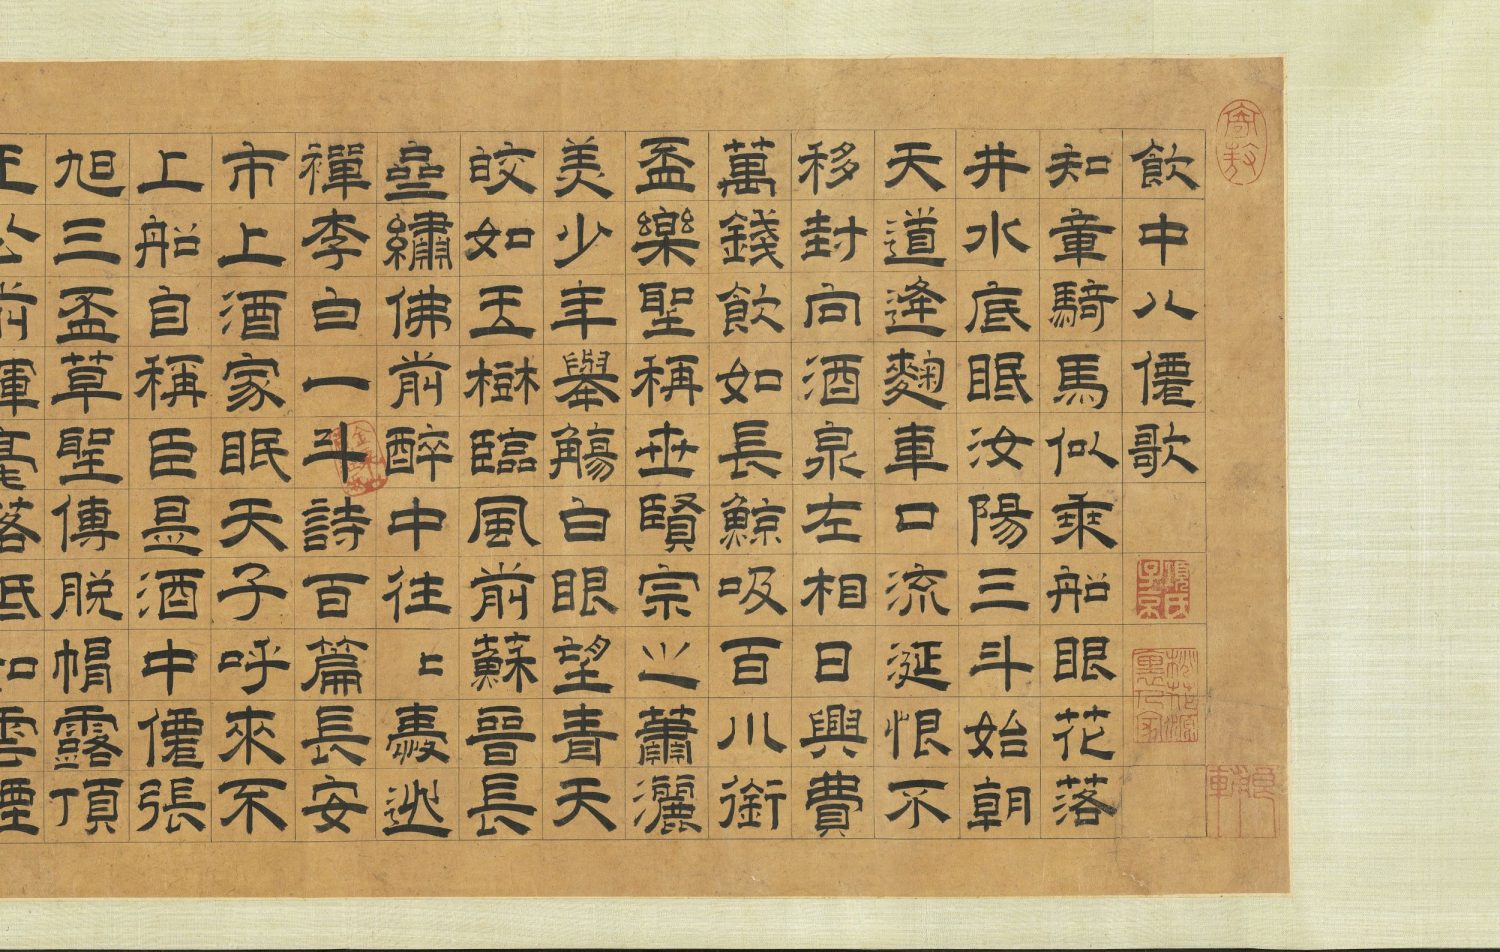 飲中八僊歌
知章騎馬似乘船眼花落
井水底眠汝陽三斗始朝
天道逢麴車口流涎恨不
移封向酒泉左相日興費
萬錢飲如長鯨吸百川銜
盃樂聖稱世賢宗之蕭灑
美少年舉觴白眼望青天
皎如玉樹臨風前蘇晉長
齋繡佛前醉中往〻愛逃
禪李白一斗詩百篇長安
市上酒家眠天子呼來不
上船自稱臣是酒中僊張
旭三盃草聖傳脫帽露頂
王公前揮毫落紙如雲煙
項氏子京
桃花源裏人家
寄敖